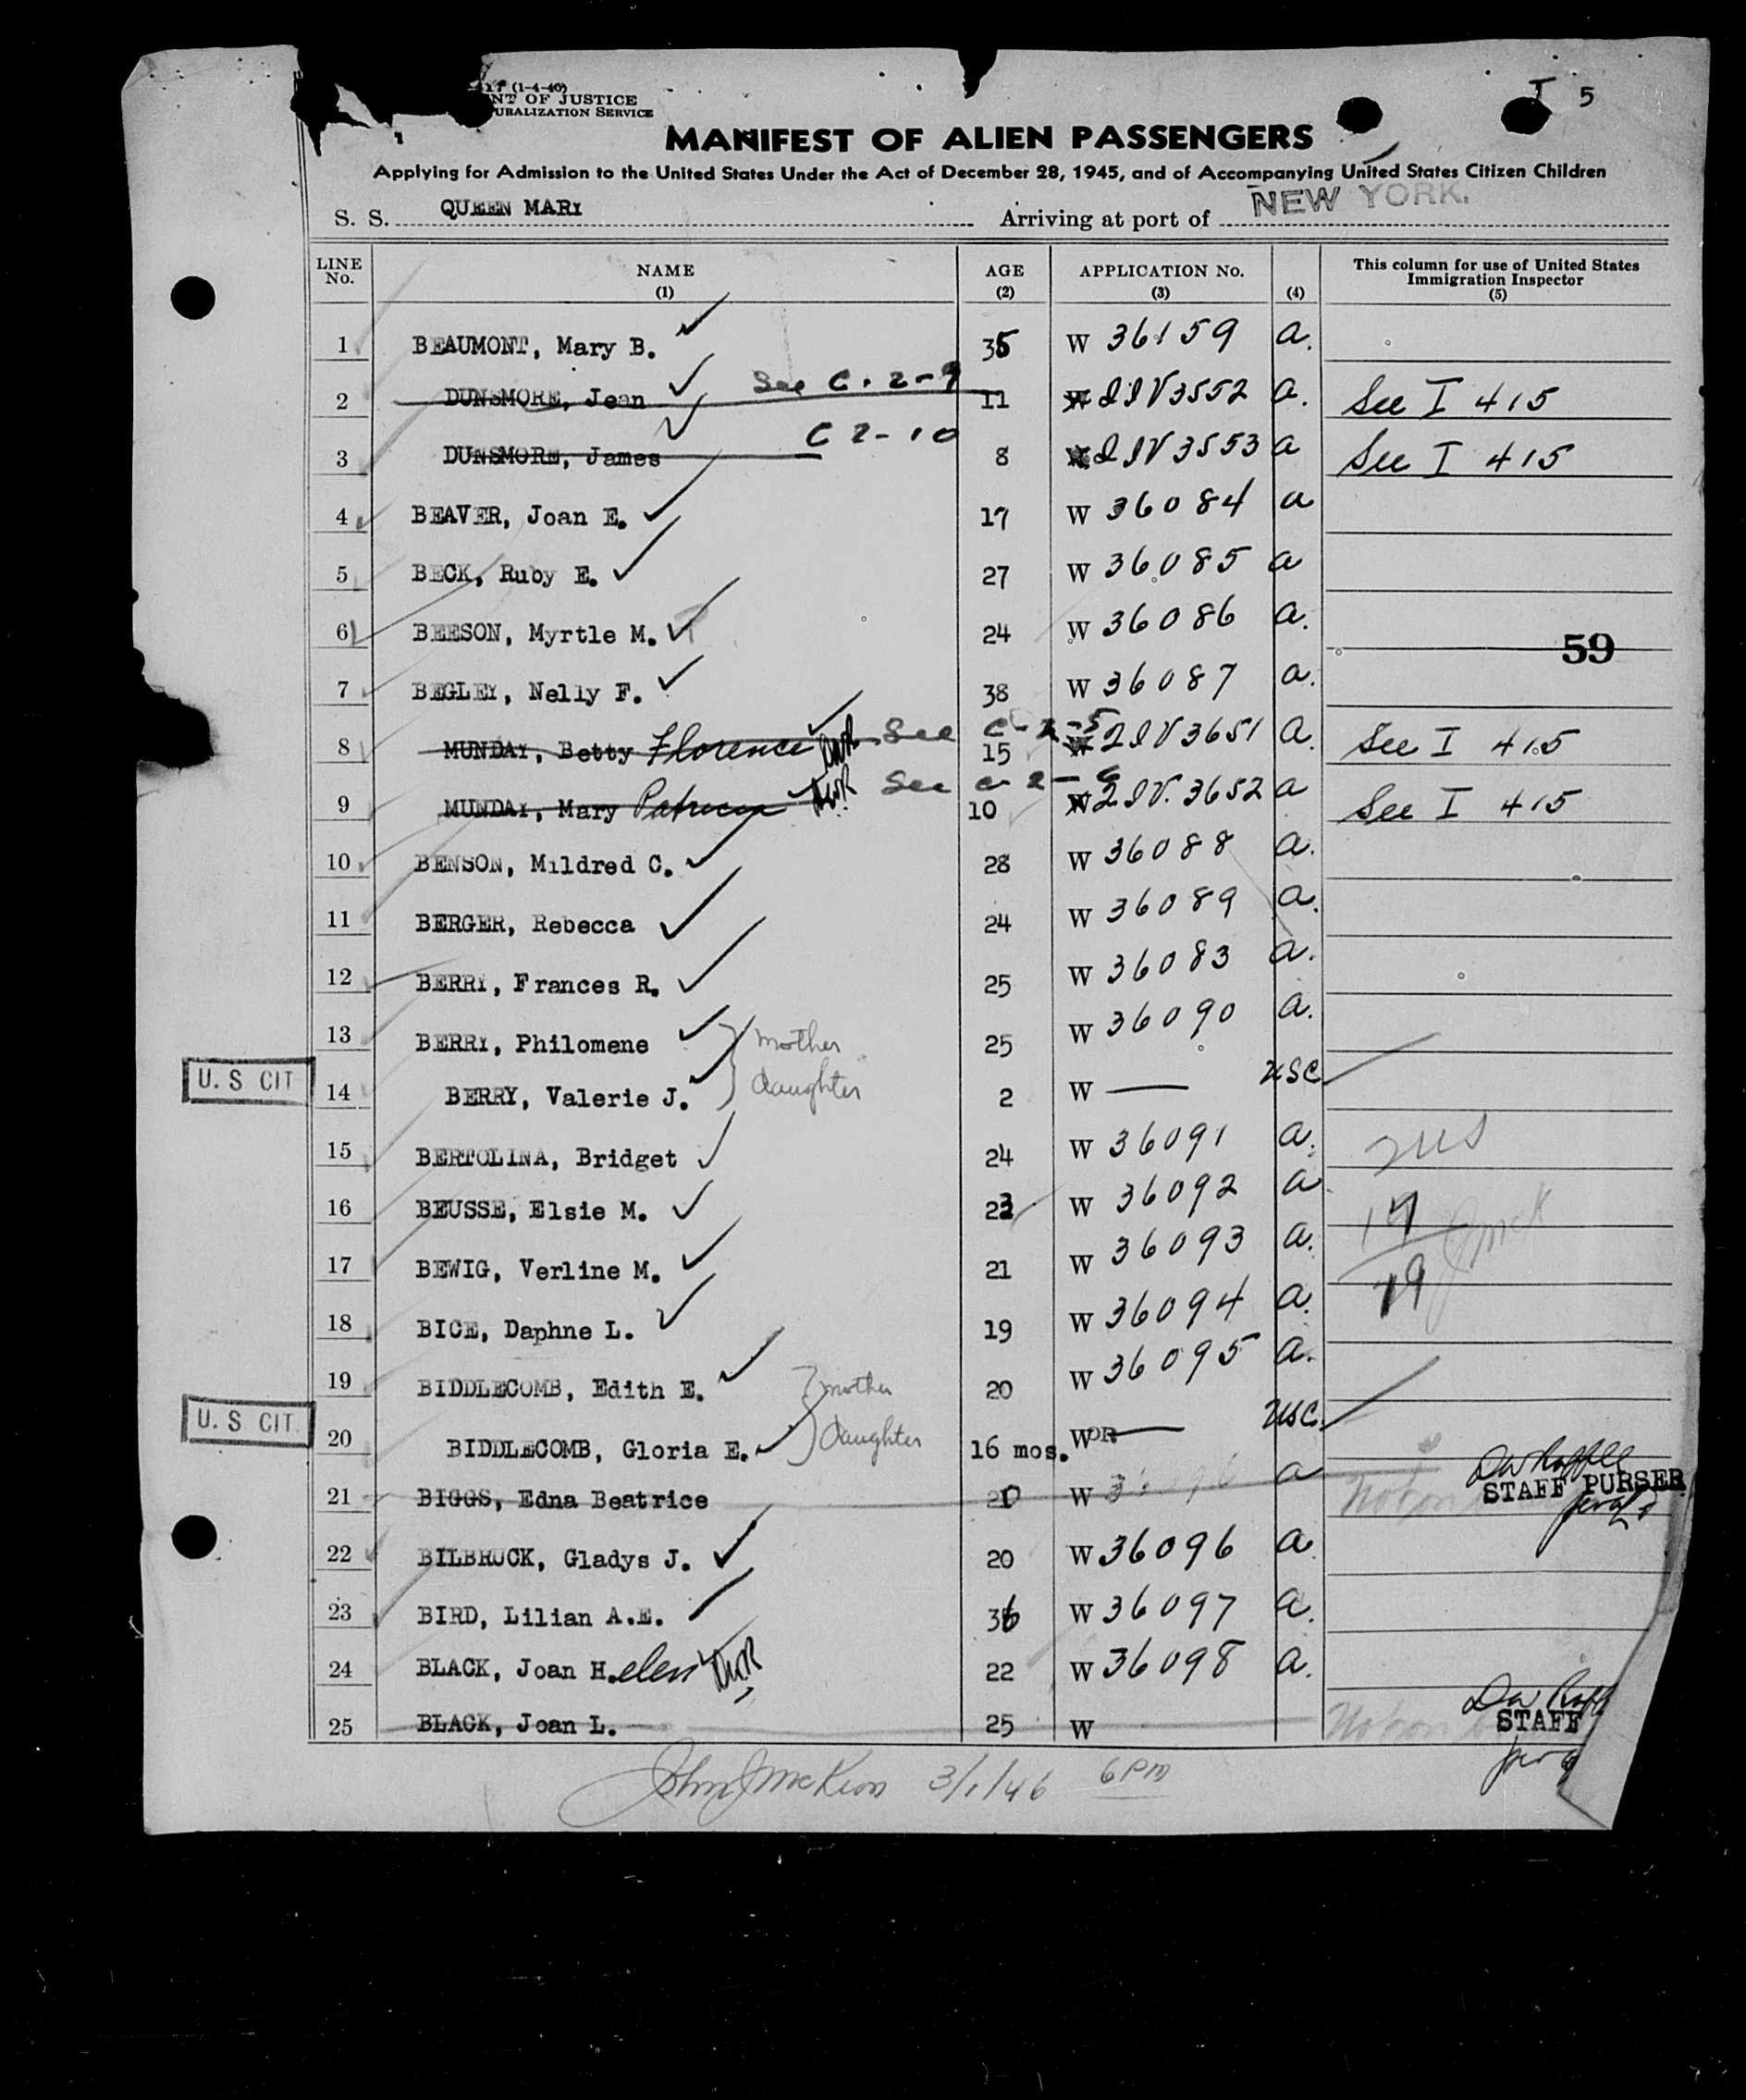 I 5
17 (1-4-40)
NT OF JUSTICE
URALIZATION SERVICE
MANIFEST OF ALIEN PASSENGERS
Applying for Admission to the United States Under the Act of December 28, 1945, and of Accompanying United States Citizen Children
S. S. QUEEN MARY Arriving at port of NEW YORK.
LINE No. NAME (1) AGE (2) APPLICATION No. (3) (4) This column for use of United States Immigration Inspector (5)
1 BEAUMONT, Mary B. 35 W 36159 a.
2 DUNSMORE, Jean See C. 2-9 11 W 2IV3552 a. See I 415
3 DUNSMORE, James C 2-10 8 W 2IV3553 a See I 415
4 BEAVER, Joan E. 17 W 36084 a
5 BECK, Ruby E. 27 W 36085 a
6 BEESON, Myrtle M. 24 W 36086 a.
59
7 BEGLEY, Nelly F. 38 W 36087 a.
8 MUNDAY, Betty Florence DWR See C-2-5 15 W 2IV3651 a. See I 415
9 MUNDAY, Mary Patricia DWR See C-2-6 10 W 2IV.3652 a See I 415
10 BENSON, Mildred C. 28 W 36088 a.
11 BERGER, Rebecca 24 W 36089 a.
12 BERRY, Frances R. 25 W 36083 a.
13 BERRY, Philomene mother 25 W 36090 a.
U. S CIT 14 BERRY, Valerie J. daughter 2 W — USC
15 BERTOLINA, Bridget 24 W 36091 a. 2US
16 BEUSSE, Elsie M. 23 W 36092 a 17 JMcK
17 BEWIG, Verline M. 21 W 36093 a. 19
18 BICE, Daphne L. 19 W 36094 a.
19 BIDDLECOMB, Edith E. mother 20 W 36095 a.
U. S CIT. 20 BIDDLECOMB, Gloria E. daughter 16 mos. W — USC.
21 BIGGS, Edna Beatrice 20 W a STAFF PURSER
22 BILBRUCK, Gladys J. 20 W 36096 a.
23 BIRD, Lilian A.E. 36 W 36097 a.
24 BLACK, Joan H.elen DWR 22 W 36098 a.
25 BLACK, Joan L. 25 W STAFF
John J McKeon 3/1/46 6 PM